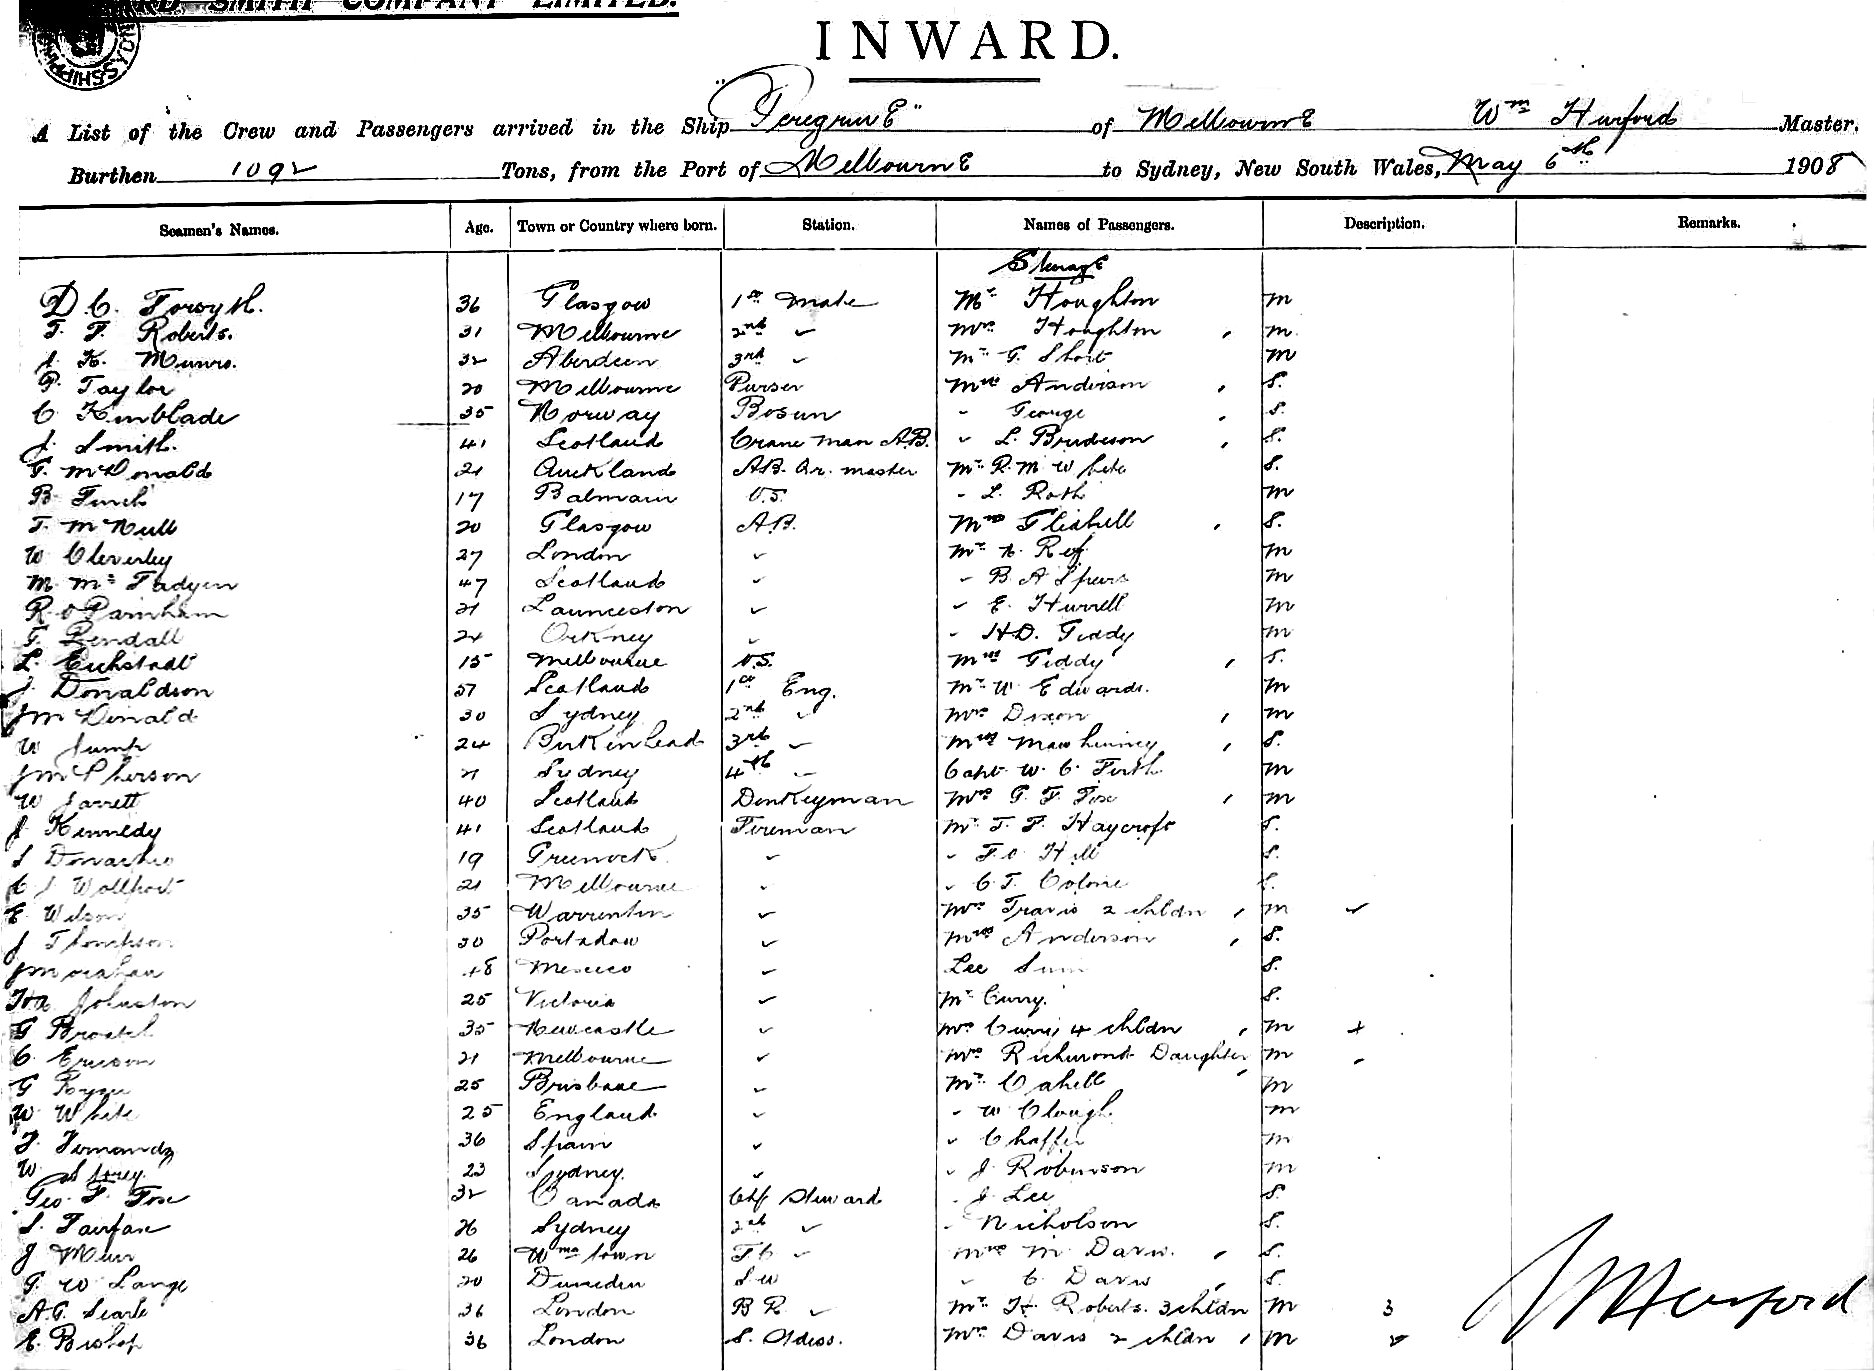 RD SMITH COMPANY LIMITED.
INWARD.
A List of the Crew and Passengers arrived in the Ship "Peregrine" of Melbourne Wm Hurford Master.
Burthen 1092 Tons, from the Port of Melbourne to Sydney, New South Wales, May 6th 1908
Seamen's Names. Age. Town or Country where born. Station. Names of Passengers. Description. Remarks.
Steerage
D C Forsyth. 36 Glasgow 1st Mate Mr Houghton m
T. F. Roberts. 31 Melbourne 2nd " Mrs Houghton , m.
J K. Munro. 32 Aberdeen 3rd " Mr G. Short m
P. Taylor 20 Melbourne Purser Miss Anderson , S.
C Kinblade 35 Norway Bosun " George , S.
J. Smith. 41 Scotland Crane man A.B. " L. , S.
G. McDonald 21 Auckland AB. Qr. master Mr R. M. White S.
B. Finch 17 Balmain O.S. " L. Roth m
T. McNeill 20 Glasgow A.B. Miss , S.
W Cleverley 27 London " Mr m
M. Mc Fadyen 47 Scotland " " B A Spurs m
R. O Parnham 21 Launceston " " E. Hurrell m
T. Rendall 24 Orkney " " H.D. Giddy m
L. Eichstadt 15 Melbourne O.S. Miss Giddy , S.
J. Donaldson 57 Scotland 1st Eng. Mr W Edwards. m
J McDonald 30 Sydney 2nd " Mrs Dixon , m
W Jump 24 Birkenhead 3rd " Miss Mawhinney , S.
J McPherson 21 Sydney 4th " Capt. W. C. Firth m
W Jarrett 40 Scotland Donkeyman Mrs G. F. Fox , m
J. Kennedy 41 Scotland Fireman Mr T. F. Haycroft S.
19 Greenock " " Hill S.
21 Melbourne " " C. T. S.
E. Wilson 35 " Mrs Travis 2 chldn , m
J Thompson 30 Portadown " Miss Anderson , S.
48 Mexico " Lee S.
Johnston 25 Victoria " Mr Curry. S.
G 35 Newcastle " Mrs Curry 4 chldn , m 4
C. Ericson 21 Melbourne " Mrs Richmond Daughter m
G 25 Brisbane " Mr Cahill m
W. White 25 England " " W Clough m
F. Fernandz 36 Spain " " Chaffer m
W. Storey. 23 Sydney. " " J. Robinson m
Geo. F. Fox 32 Canada Chf Steward " J. Lee S.
S. Fairfax 26 Sydney 2nd " " Nicholson S.
J Muir 26 Wms town F C " Miss M Davis. , S.
G. W Lange 20 Dunedin S W " C. Davis , S.
A.G. Searle 36 London B R. " Mr H Roberts. 3 chldn m 3
E. Bishop 36 London S. Stdess. Mrs Davis 2 chldn , m 2
Hurford